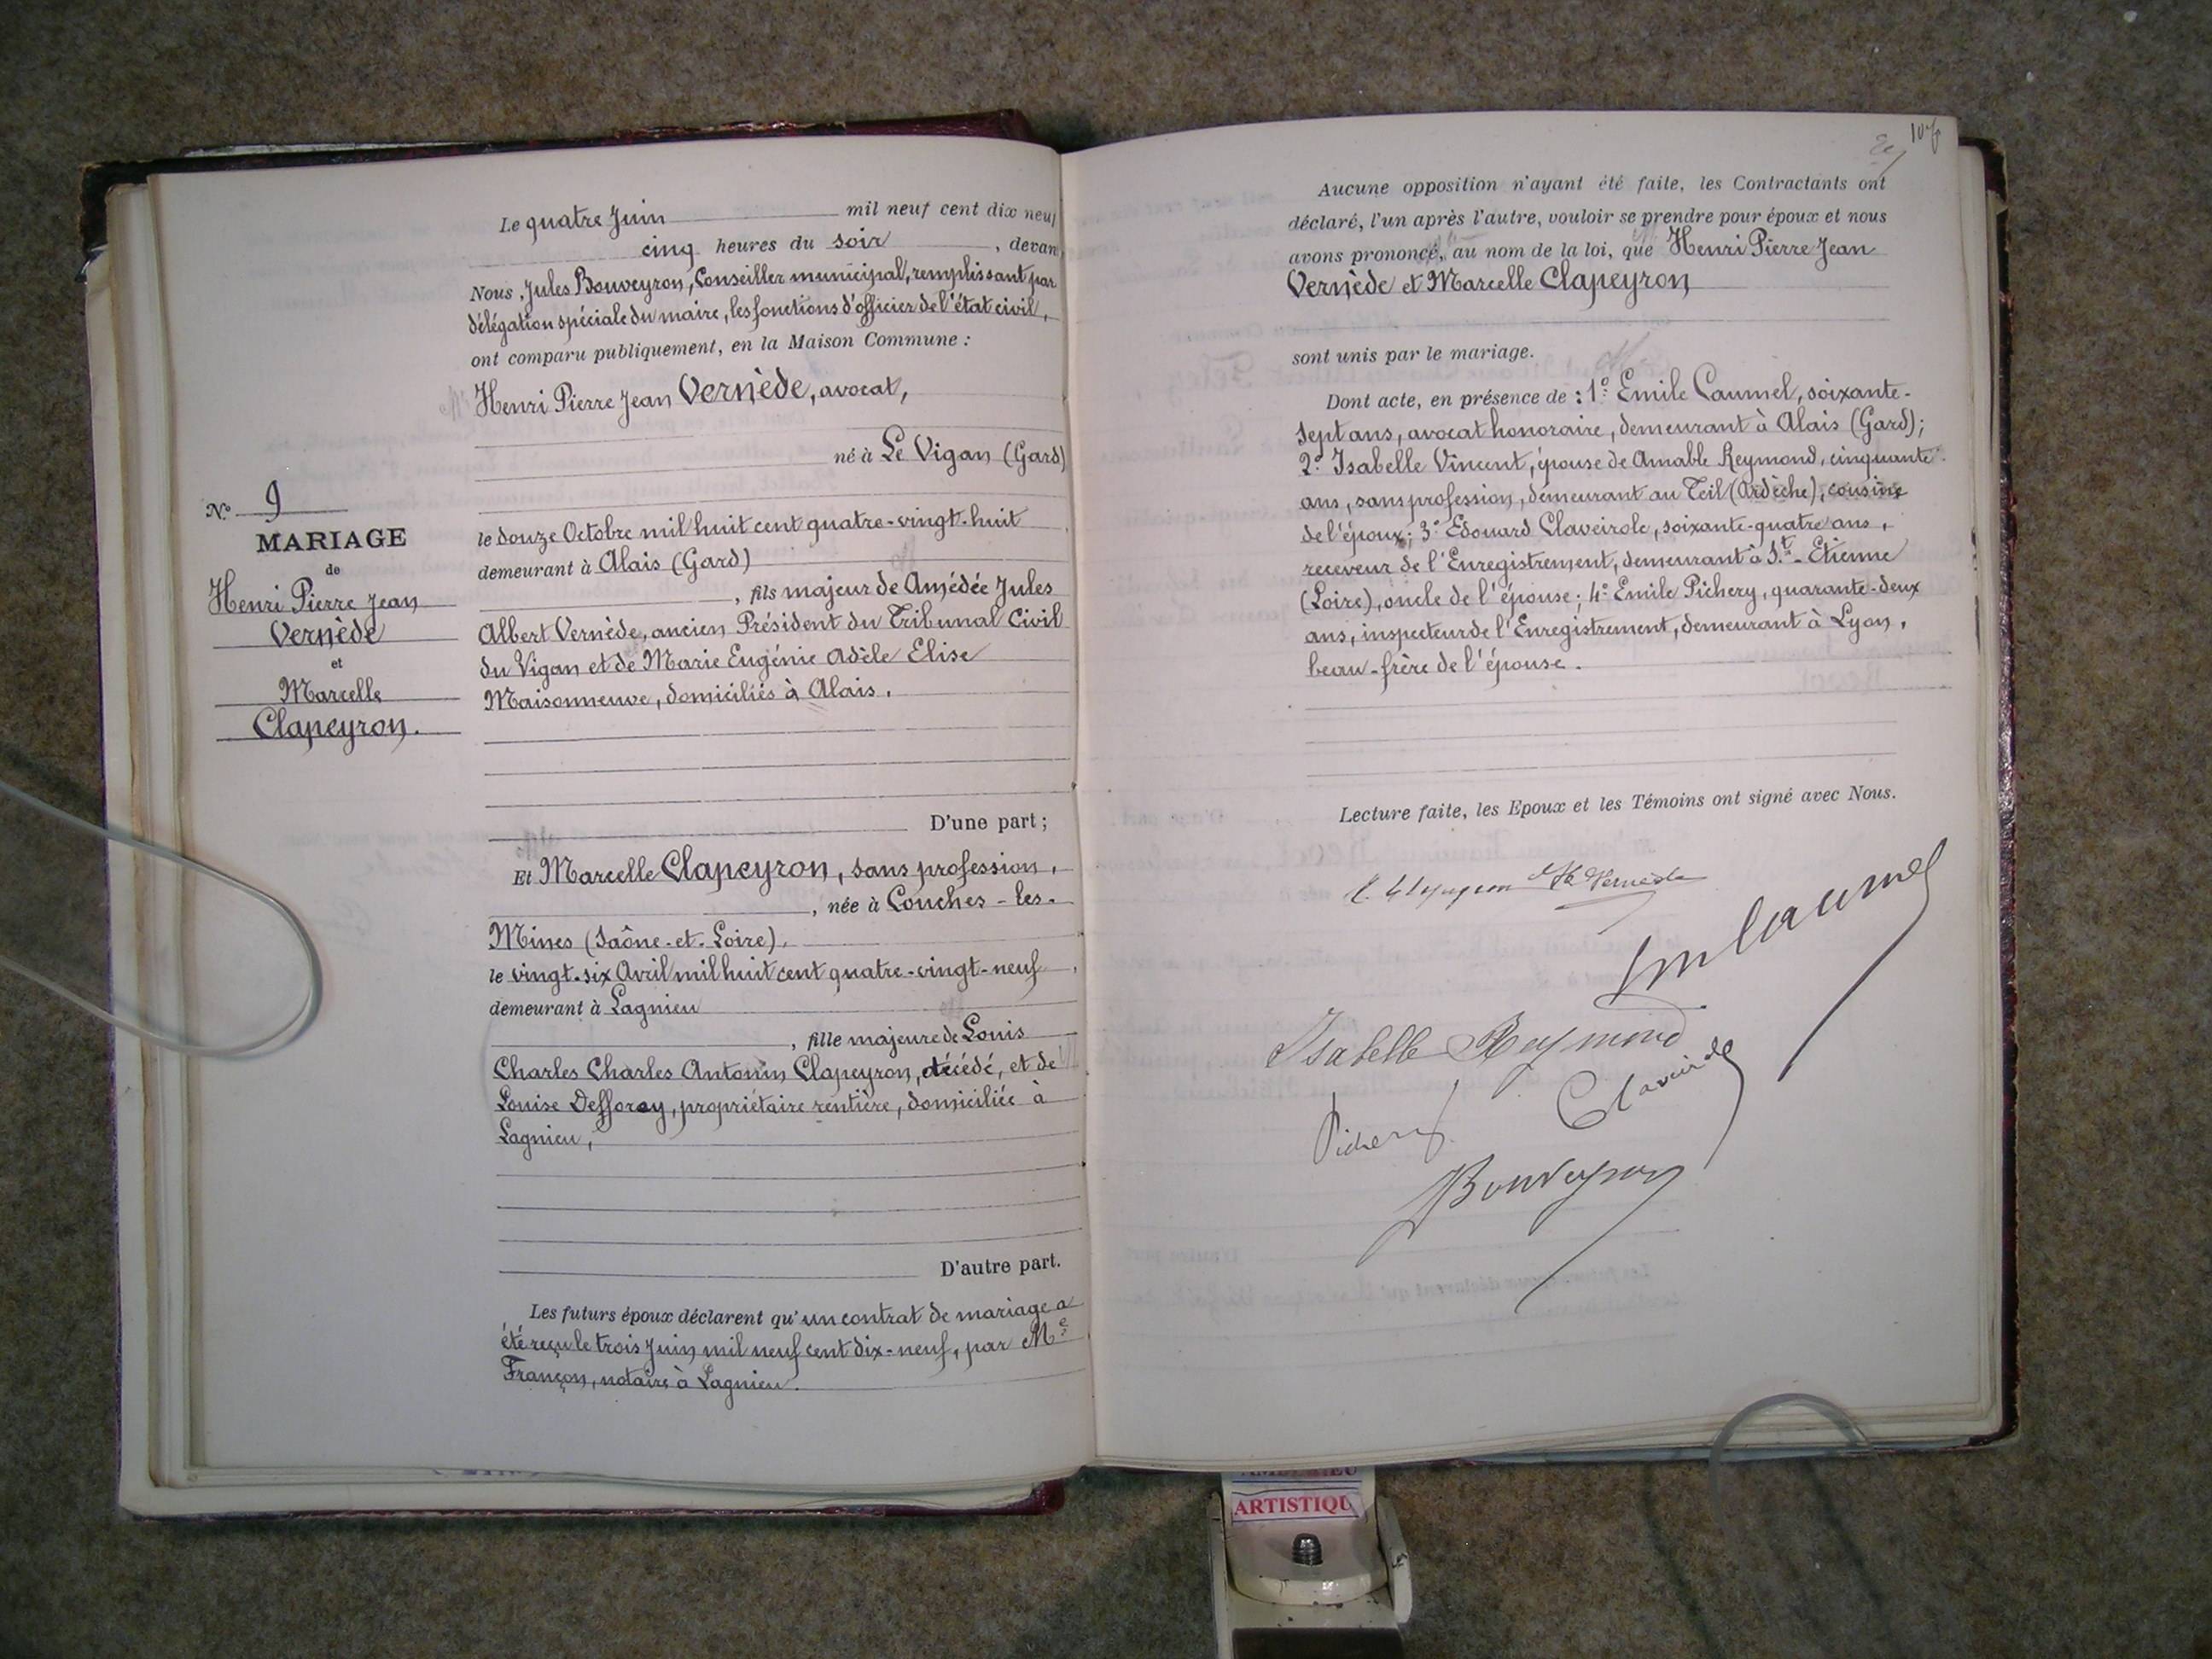 N° 9
MARIAGE
de
Henri Pierre Jean
Vernède
et
Marcelle
Clapeyron.
Le quatre Juin mil neuf cent dix neuf
cinq heures du soir, devan
Nous, Jules Bouveyron, Conseiller municipal, remplissant par
délégation spéciale du maire, les fonctions d'officier de l'état civil,
ont comparu publiquement, en la Maison Commune :
Henri Pierre Jean Vernède, avocat,
né à Le Vigan (Gard)
le douze Octobre mil huit cent quatre-vingt-huit
demeurant à Alais (Gard)
, fils majeur de Amédée Jules
Albert Vernède, ancien Président du Tribunal Civil
du Vigan et de Marie Eugénie Adèle Elise
Maisonneuve, domiciliés à Alais.
D'une part ;
Et Marcelle Clapeyron, sans profession,
, née à Couches-les-
Mines (Saône-et-Loire),
le vingt-six Avril mil huit cent quatre-vingt-neuf,
demeurant à Lagnieu
, fille majeure de Louis
Charles Charles Antonin Clapeyron, décédé, et de
Louise Defforey, propriétaire rentière, domiciliée à
Lagnieu,
D'autre part.
Les futurs époux déclarent qu'un contrat de mariage a
été reçu le trois Juin mil neuf cent dix-neuf, par Me
Françon, notaire à Lagnieu.
Aucune opposition n'ayant été faite, les Contractants ont
déclaré, l'un après l'autre, vouloir se prendre pour époux et nous
avons prononcé, au nom de la loi, que Henri Pierre Jean
Vernède et Marcelle Clapeyron
sont unis par le mariage.
Dont acte, en présence de : 1° Emile Caumel, soixante-
sept ans, avocat honoraire, demeurant à Alais (Gard);
2° Isabelle Vincent, épouse de Amable Reymond, cinquante
ans, sans profession, demeurant au Teil (Ardèche), cousine
de l'époux; 3° Edouard Claveirole, soixante-quatre ans,
receveur de l'Enregistrement, demeurant à St-Etienne
(Loire), oncle de l'épouse; 4° Emile Pichery, quarante-deux
ans, inspecteur de l'Enregistrement, demeurant à Lyon,
beau-frère de l'épouse.
Lecture faite, les Epoux et les Témoins ont signé avec Nous.
Vernède
Em Caumel
Isabelle Reymond
Claveirole
Pichery
Bouveyron
ARTISTIQU